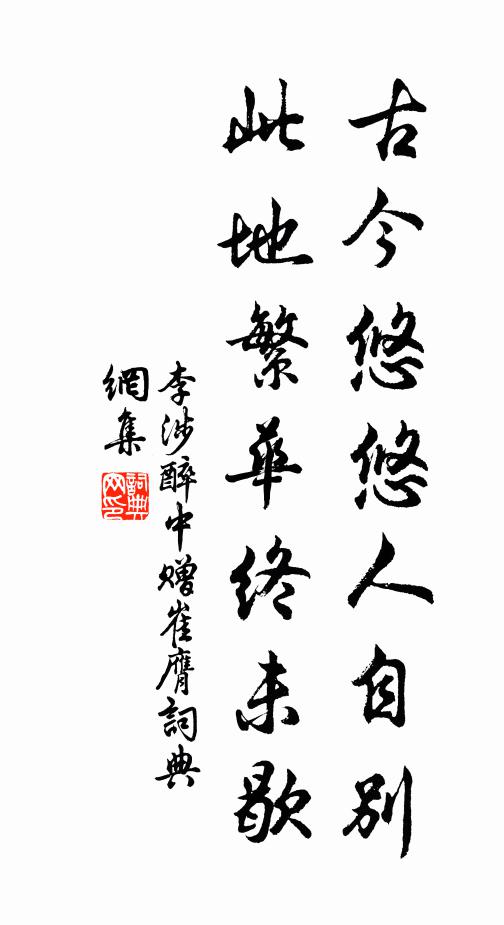 古今悠悠人自別
此地繁華終未歇
李涉醉中贈崔膺詞典
網集
詞典
网印